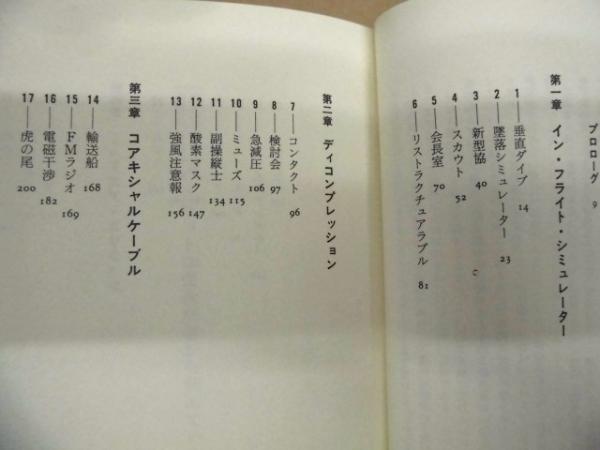 プロローグ 9
第一章 イン・フライト・シミュレーター
1——垂直ダイブ 14
2——墜落シミュレーター 23
3——新型協 40
4——スカウト 52
5——会長室 70
6——リストラクチュアラブル 81
第二章 ディコンプレッション
7——コンタクト 96
8——検討会 97
9——急減圧 106
10——ミューズ 115
11——副操縦士 134
12——酸素マスク 147
13——強風注意報 156
第三章 コアキシャルケーブル
14——輸送船 168
15——FMラジオ 169
16——電磁干渉 182
17——虎の尾 200